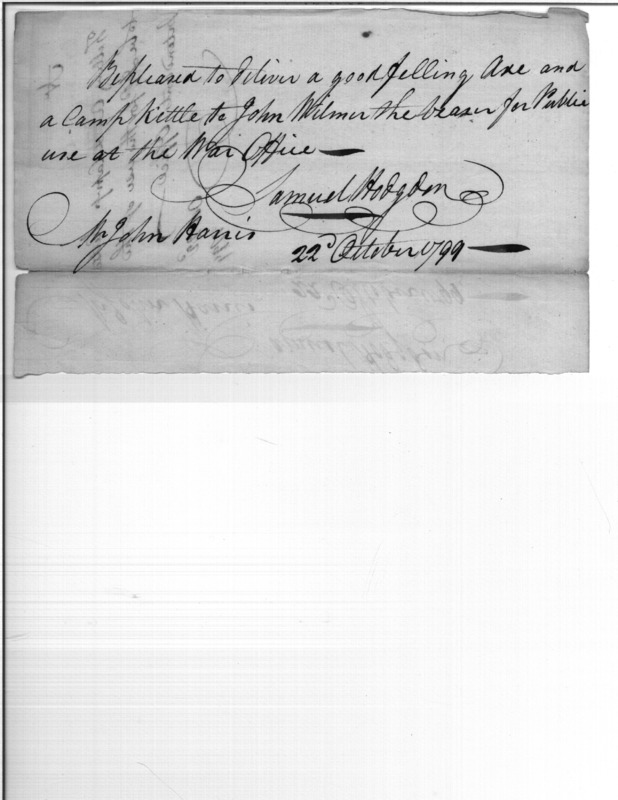 Be pleased to deliver a good felling Axe and
a Camp Kittle to John Wilmer the bearer for Public
use at the War Office
Samuel Hodgdon
Mr John Harris
22d October 1799